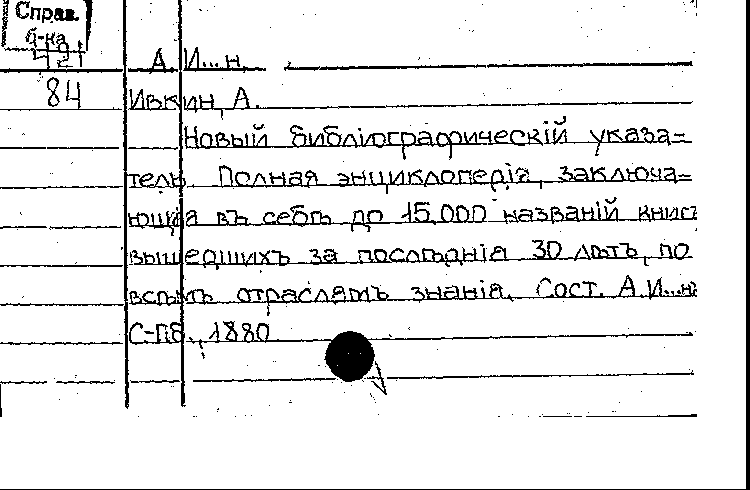 Справ.
б-ка
421
А. И...н.
84
Ивкин, А.
Новый библіографическій указа=
тель. Полная энциклопедія, заключа=
ющая въ себѣ до 15.000 названій книг
вышедшихъ за послѣднія 30 лѣтъ, по
всѣмъ отраслямъ знанія. Сост. А.И...н.
С-Пб., 1880